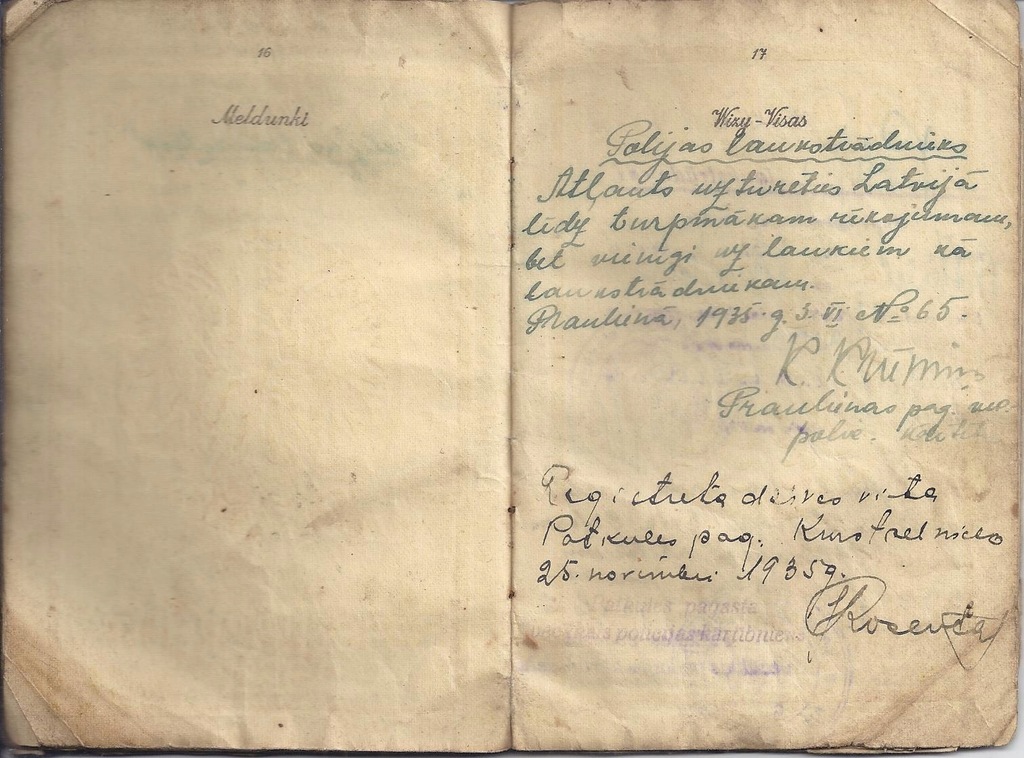 16
Meldunki
17
Wizy-Visas
Polijas laukstrādnieks
Atļauts uzturēties Latvijā
līdz turpmākam rīkojumam,
bet vienīgi uz laukiem kā
laukstrādniekam.
Praulienā, 1935. g. 3. VI № 65.
K. Krūmiņ
Praulienas pag. vec.
polic. kārtib
Registrēta dzīves vieta
Patkules pag.
25. novembri 1935 g.
Patkules pagasta
vecākais policijas kārtībnieks